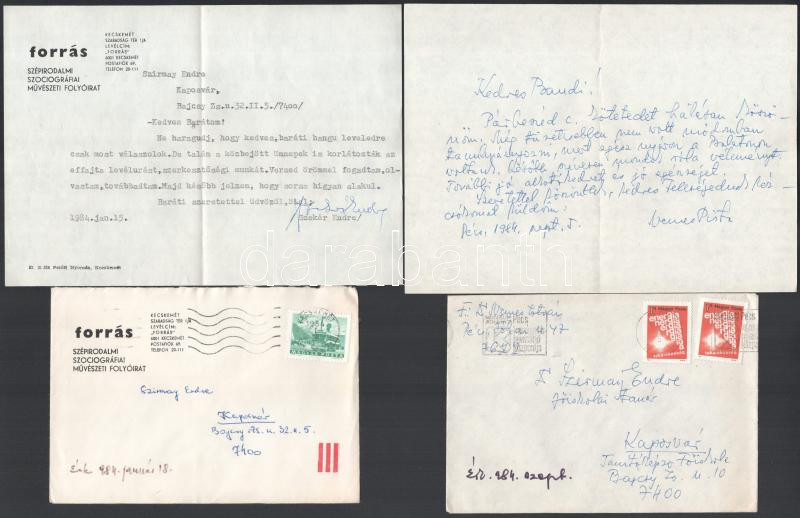 forrás
KECSKEMÉT
SZABADSÁG TÉR 1/A
LEVÉLCÍM:
„FORRÁS"
6001 KECSKEMÉT
POSTAFIÓK 69.
TELEFON 20-111
SZÉPIRODALMI
SZOCIOGRÁFIAI
MŰVÉSZETI FOLYÓIRAT
Szirmay Endre
Kaposvár,
Bajcsy Zs.u.32.II.5./7400/
-Kedves Barátom!
Ne haragudj, hogy kedves, baráti hangu leveledre
csak most válaszolok.De talán a közbejött Ünnepek is korlátozták az
effajta levélurást,szerkesztőségi munkát.Versed örömmel fogadtam,ol-
vastam,továbbadtam.Majd később jelzem, hogy sorsa higyan alakul.
Baráti szeretettel üdvözöl,
1984.jan.15.
/Szekér Endre/
Petőfi Nyomda, Kecskemét
Kedves Bandi!
Párbeszéd c. kötetedet hálásan köszö-
nöm. Még tüzetesebben nem volt módomban
tanulmányozni, mert egész nyáron a Balatonon
voltunk. Később szívesen mondok róla véleményt.
További jó alkotókedvet és jó egészséget.
Szeretettel köszöntlek, kedves Feleségednek kéz-
csókomat küldöm:
Pécs, 1984. szept. 5.
Nemes Pista
forrás
KECSKEMÉT
SZABADSÁG TÉR 1/A
LEVÉLCÍM:
„FORRÁS"
6001 KECSKEMÉT
POSTAFIÓK 69.
TELEFON 20-111
SZÉPIRODALMI
SZOCIOGRÁFIAI
MŰVÉSZETI FOLYÓIRAT
MAGYAR POSTA
Szirmay Endre
Kaposvár
Bajcsy Zs. u. 32. II. 5.
7400
Érk. 984. január 18.
F: Dr Nemes István
Pécs
Magyar Posta
Dr Szirmay Endre
főiskolai tanár
Kaposvár
Tanítóképző Főiskola
Bajcsy Zs. u. 10
7400
Érk. 984. szept.
darabanth